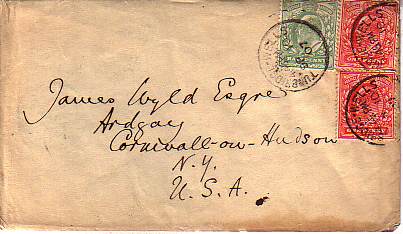 James Wyld Esqre
Ardgay
Cornwall-on-Hudson
N.Y.
U.S.A.
TUNBRIDGE WELLS
WELLS
WELLS